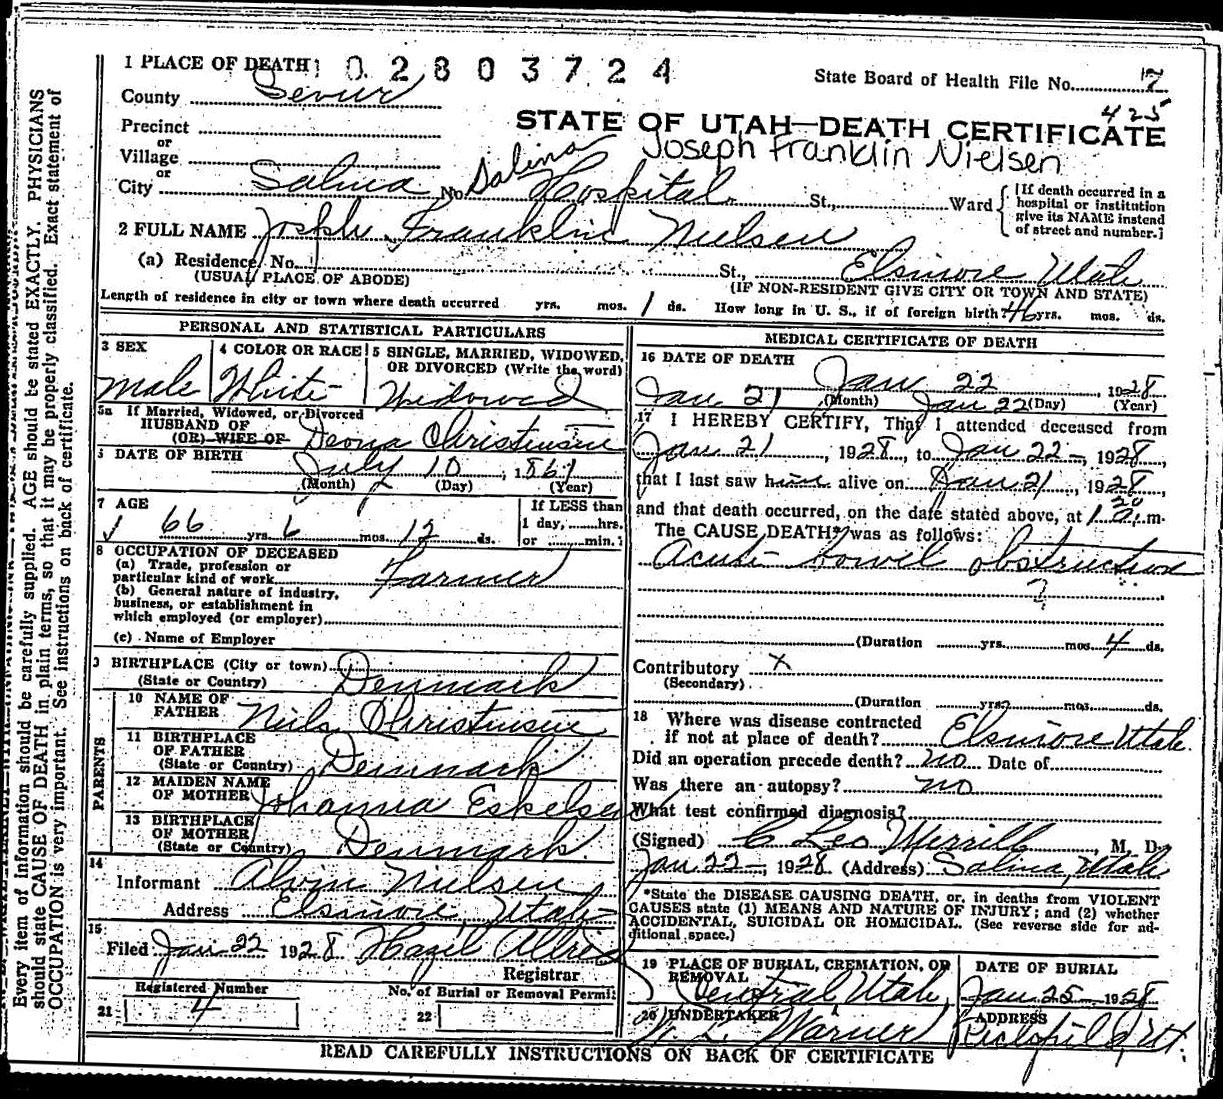 1 PLACE OF DEATH 1 0 2 8 0 3 7 2 4
State Board of Health File No. 7
County Sevier
425
STATE OF UTAH—DEATH CERTIFICATE
Precinct
or
Joseph Franklin Nielsen
Village
or
City Salina No. Salina Hospital St., Ward
[If death occurred in a hospital or institution give its NAME instead of street and number.]
2 FULL NAME Joseph Franklin Nielsen
(a) Residence, No. St., Elsinore Utah
(USUAL PLACE OF ABODE) (IF NON-RESIDENT GIVE CITY OR TOWN AND STATE)
Length of residence in city or town where death occurred yrs. mos. 1 ds. How long in U. S., if of foreign birth? 46 yrs. mos. ds.
PERSONAL AND STATISTICAL PARTICULARS
3 SEX
Male
4 COLOR OR RACE
White
5 SINGLE, MARRIED, WIDOWED, OR DIVORCED (Write the word)
Widowed
5a If Married, Widowed, or Divorced
HUSBAND OF
(OR) WIFE OF Deona Christensen
6 DATE OF BIRTH
July 10, 1861
(Month) (Day) (Year)
7 AGE
66 yrs. 6 mos. 12 ds.
If LESS than
1 day, hrs.
or min.?
8 OCCUPATION OF DECEASED
(a) Trade, profession or
particular kind of work Farmer
(b) General nature of industry,
business, or establishment in
which employed (or employer)
(c) Name of Employer
9 BIRTHPLACE (City or town)
(State or Country) Denmark
PARENTS
10 NAME OF
FATHER Niels Christensen
11 BIRTHPLACE
OF FATHER
(State or Country) Denmark
12 MAIDEN NAME
OF MOTHER Johanna Eskelsen
13 BIRTHPLACE
OF MOTHER
(State or Country) Denmark
14
Informant Alvin Nielsen
Address Elsinore, Utah
15
Filed Jan 22 1928 Hazel Allred
Registrar
Registered Number
21 4
No. of Burial or Removal Permit
22
MEDICAL CERTIFICATE OF DEATH
16 DATE OF DEATH
Jan 22 1928
Jan. 21 (Month) Jan 22 (Day) (Year)
17 I HEREBY CERTIFY, That I attended deceased from
Jan 21, 1928, to Jan 22, 1928,
that I last saw him alive on Jan 21, 1928,
and that death occurred, on the date stated above, at 1 20 a.m.
The CAUSE DEATH* was as follows:
Acute bowel obstruction
?
(Duration yrs. mos. 4 ds.
Contributory x
(Secondary)
(Duration yrs. mos. ds.
18 Where was disease contracted
if not at place of death? Elsinore Utah.
Did an operation precede death? no Date of
Was there an autopsy? no
What test confirmed diagnosis?
(Signed) C Leo Merrill, M. D.
Jan 22, 1928 (Address) Salina, Utah
*State the DISEASE CAUSING DEATH, or, in deaths from VIOLENT
CAUSES state (1) MEANS AND NATURE OF INJURY; and (2) whether
ACCIDENTAL, SUICIDAL OR HOMICIDAL. (See reverse side for ad-
ditional space.)
19 PLACE OF BURIAL, CREMATION, OR
REMOVAL
Central Utah,
DATE OF BURIAL
Jan. 25 1928
20 UNDERTAKER
W. L. Warner
ADDRESS
Richfield, Ut.
READ CAREFULLY INSTRUCTIONS ON BACK OF CERTIFICATE
Every item of information should be carefully supplied. AGE should be stated EXACTLY. PHYSICIANS
should state CAUSE OF DEATH in plain terms, so that it may be properly classified. Exact statement of
OCCUPATION is very important. See instructions on back of certificate.